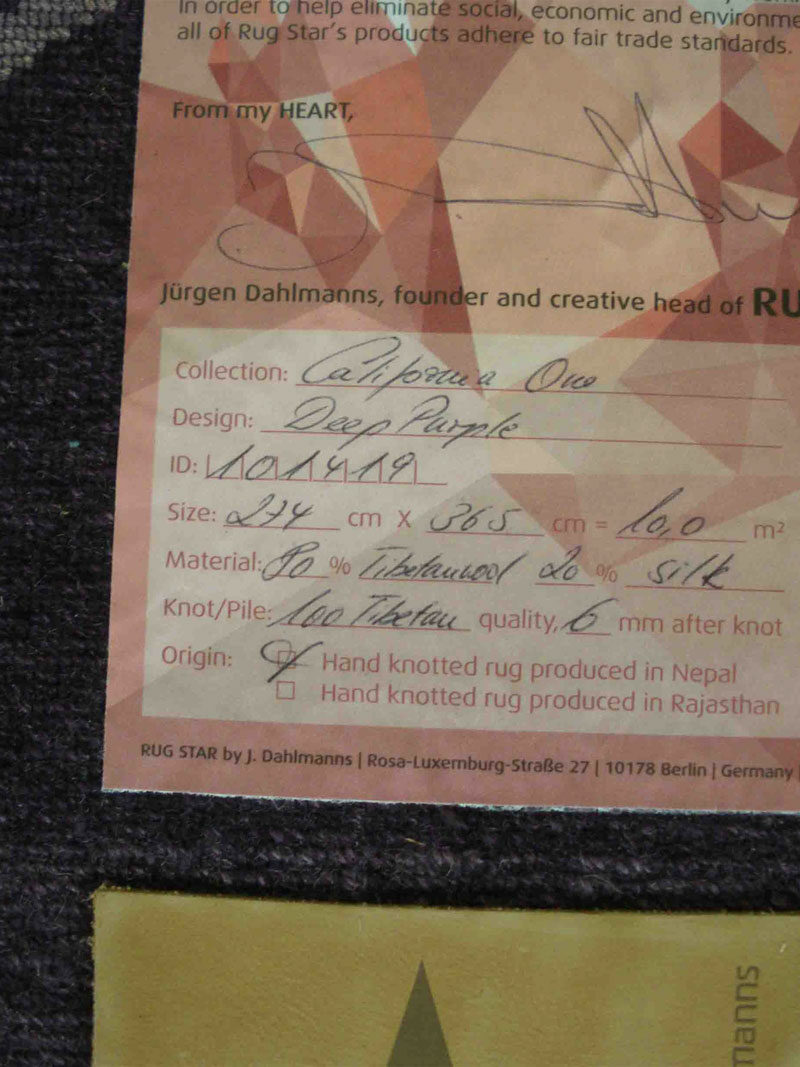 In order to help eliminate social, economic and environme
all of Rug Star's products adhere to fair trade standards.
From my HEART,
Jürgen Dahlmanns, founder and creative head of RU
Collection: California One
Design: Deep Purple
ID: 101419
Size: 274 cm X 365 cm = 10,0 m²
Material: 80 % Tibetanwool 20 % silk
Knot/Pile: 100 Tibetan quality, 6 mm after knot
Origin: Hand knotted rug produced in Nepal
Hand knotted rug produced in Rajasthan
RUG STAR by J. Dahlmanns | Rosa-Luxemburg-Straße 27 | 10178 Berlin | Germany |
manns